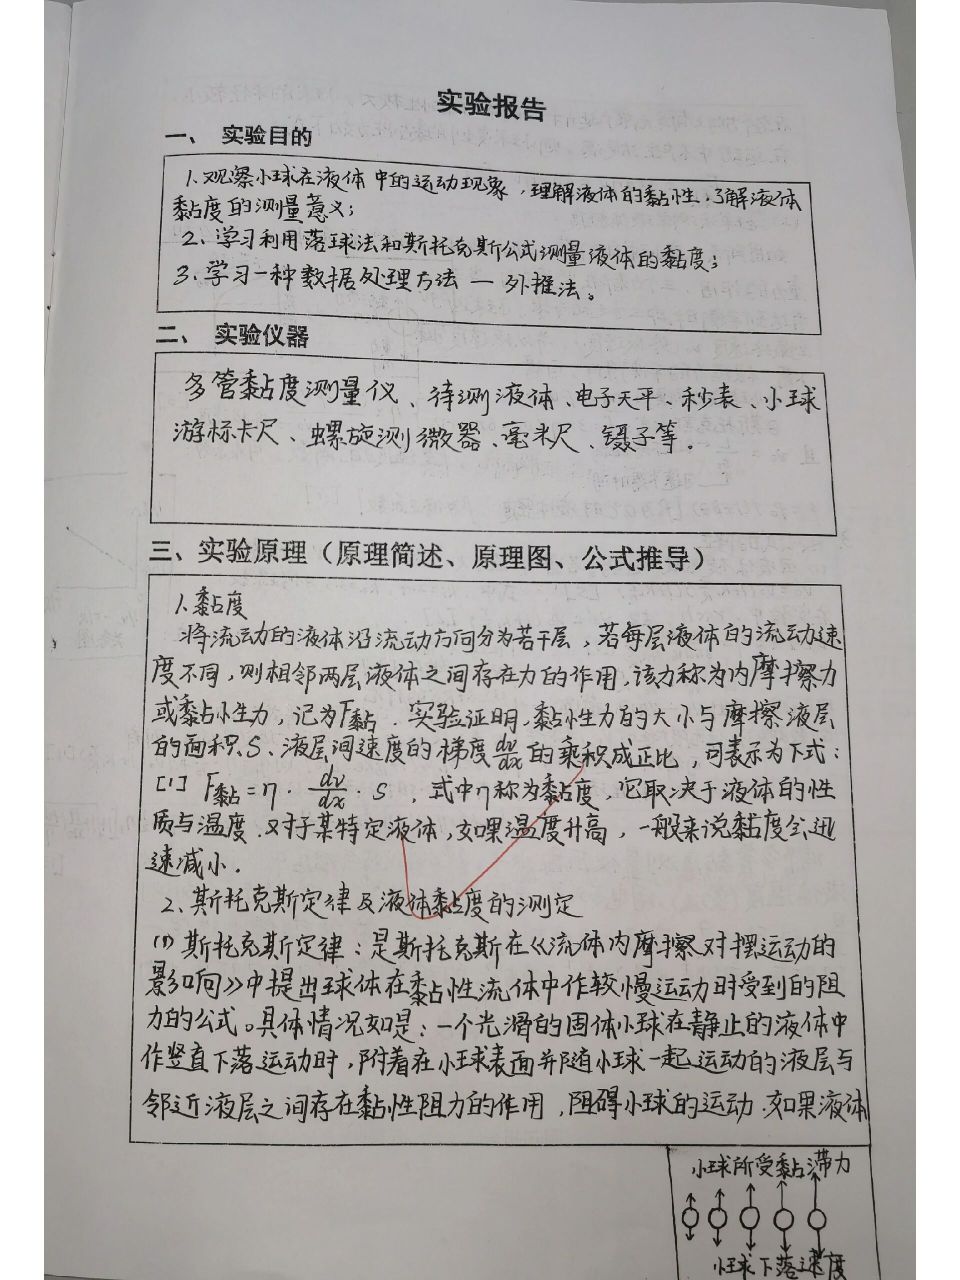 实验报告
一、 实验目的
1.观察小球在液体中的运动现象，理解液体的黏性，了解液体
黏度的测量意义；
2、学习利用落球法和斯托克斯公式测量液体的黏度；
3、学习一种数据处理方法 — 外推法。
二、 实验仪器
多管黏度测量仪、待测液体、电子天平、秒表、小球
游标卡尺、螺旋测微器、毫米尺、镊子等.
三、实验原理（原理简述、原理图、公式推导）
1.黏度
将流动的液体沿流动方向分为若干层，若每层液体的流动速
度不同，则相邻两层液体之间存在力的作用，该力称为内摩擦力
或黏性力，记为F黏．实验证明，黏性力的大小与摩擦液层
的面积S、液层间速度的梯度dv/dx的乘积成正比，可表示为下式：
[1] F黏=η·dv/dx·S ，式中η称为黏度，它取决于液体的性
质与温度．对于某特定液体，如果温度升高，一般来说黏度会迅
速减小．
2、斯托克斯定律及液体黏度的测定
(1) 斯托克斯定律：是斯托克斯在《流体内摩擦对摆运动的
影响》中提出球体在黏性流体中作较慢运动时受到的阻
力的公式。具体情况如是：一个光滑的固体小球在静止的液体中
作竖直下落运动时，附着在小球表面并随小球一起运动的液层与
邻近液层之间存在黏性阻力的作用，阻碍小球的运动．如果液体
小球所受黏滞力
小球下落速度